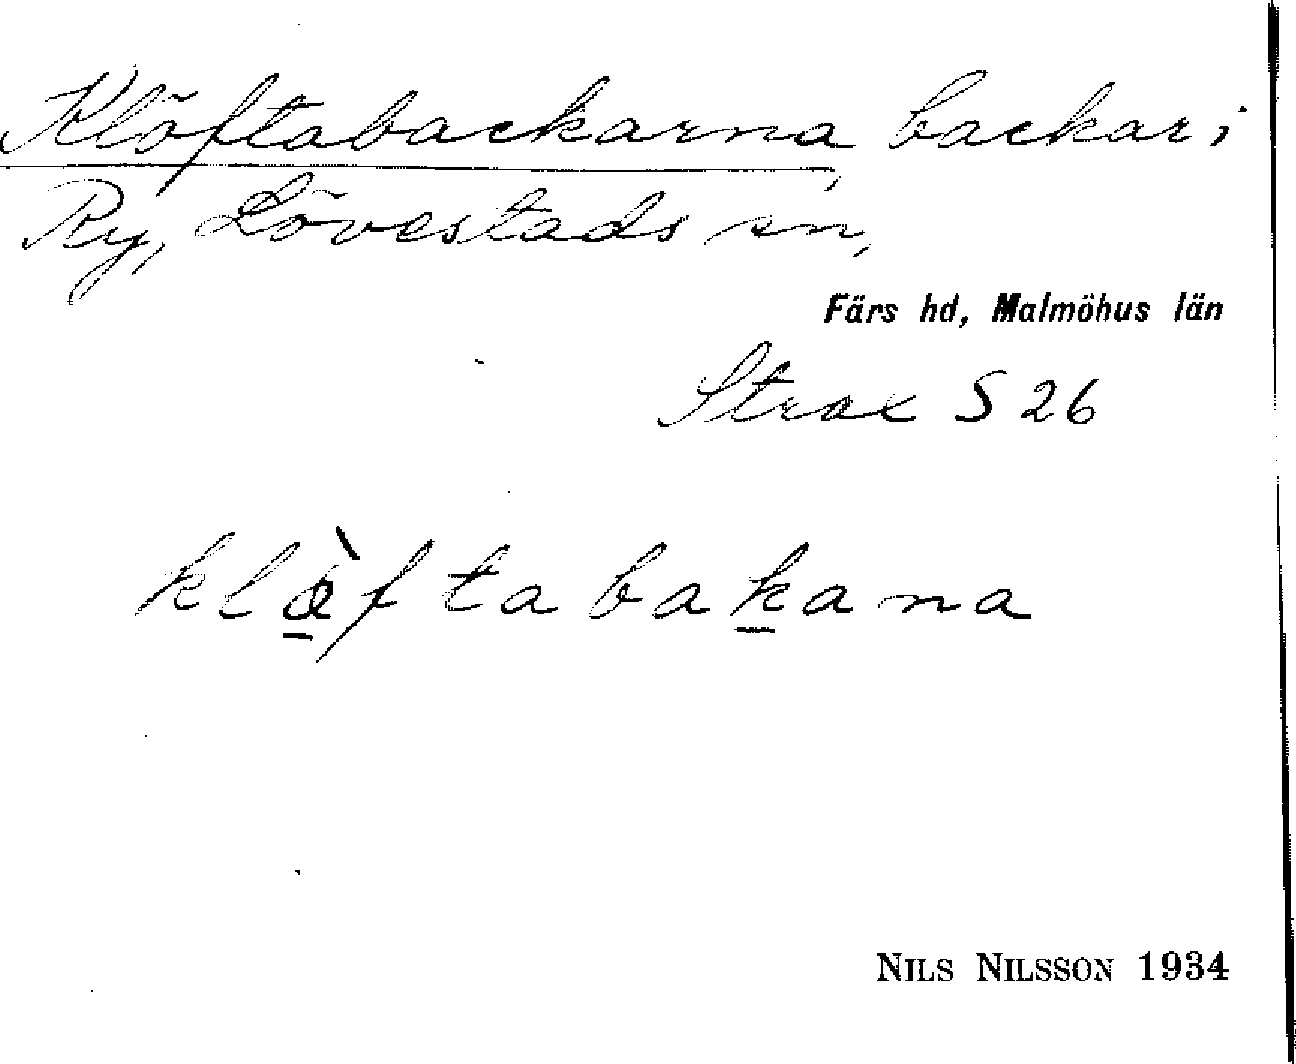 Klöftabackarna, backar i
Ry, Lövestads sn,
Färs hd, Malmöhus län
Strax S 26
klö̠̀ftabak̠ana
NILS NILSSON 1934